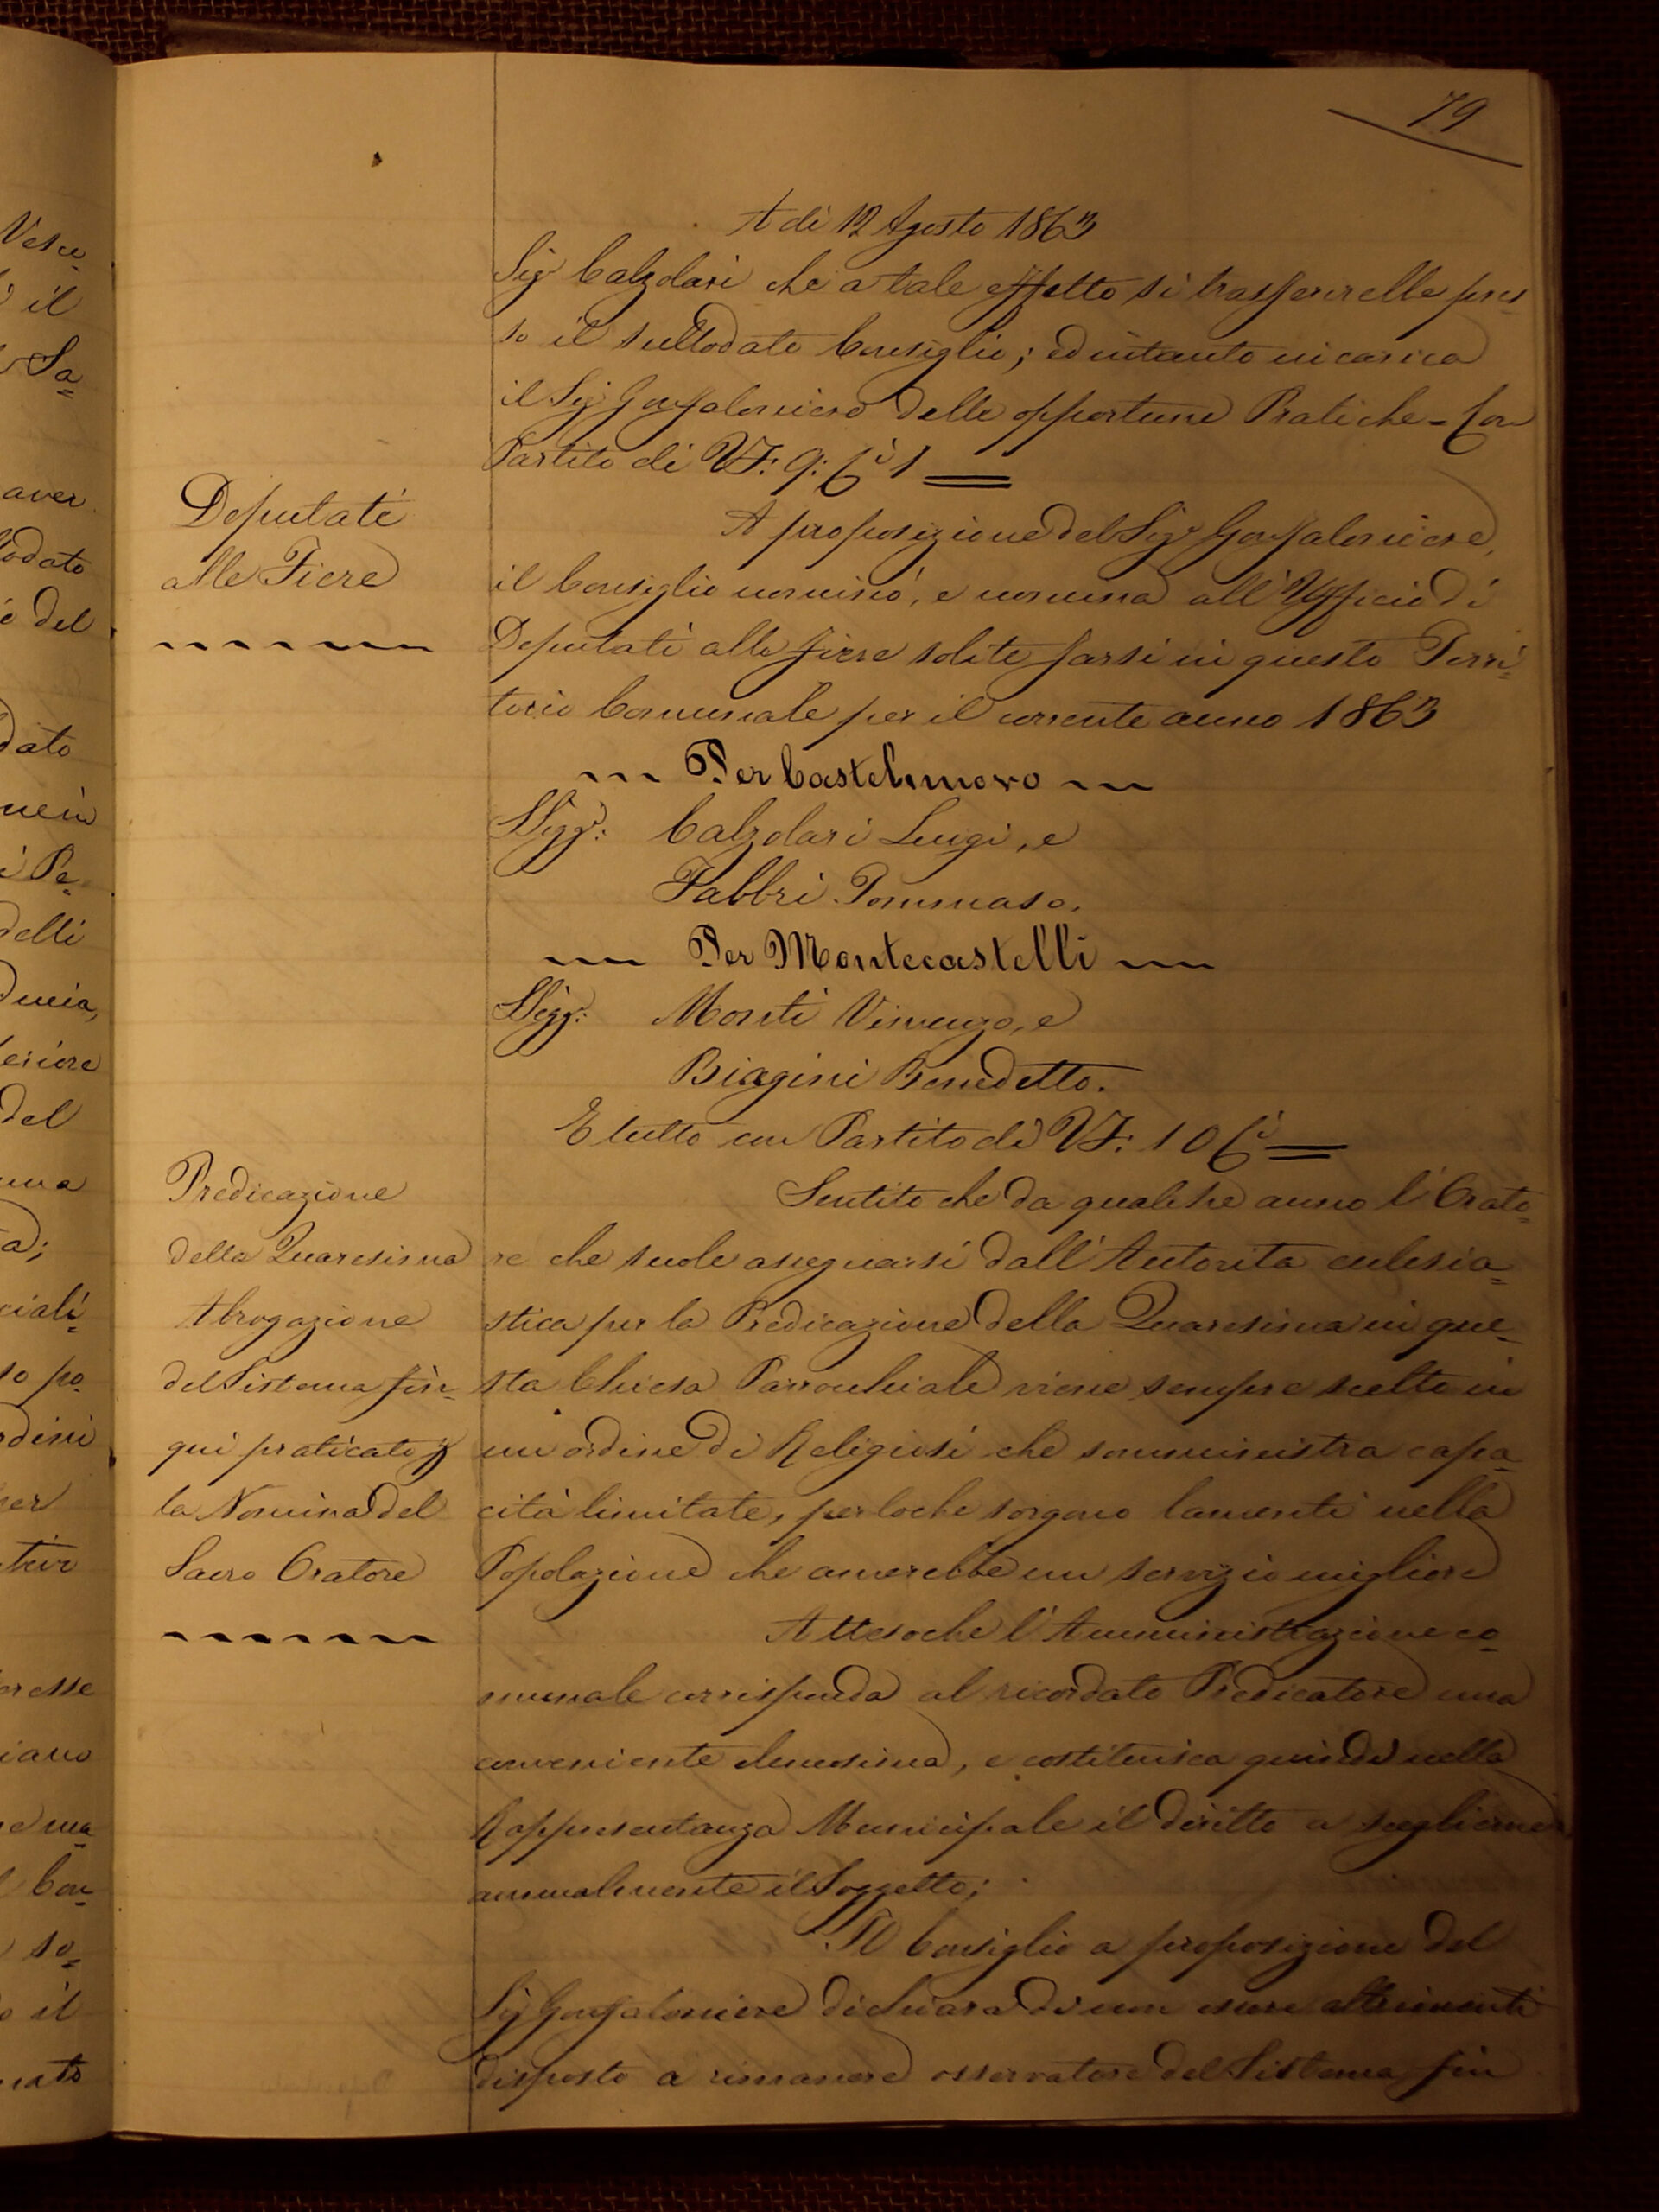 79
A dì 12 Agosto 1863
Sig.r Calzolari che a tale effetto si trasferirebbe pres-
so il sullodato Consiglio; ed intanto incarica
il Sig.r Gonfaloniere delle opportune Pratiche = Con
Partito di VF: 9: C.i 1 =
Deputati
alle Fiere
A proposizione del Sig.r Gonfaloniere,
il Consiglio nominò, e nomina all'Ufficio di
Deputati alle fiere solite farsi in questo Terri=
torio Comunale per il corrente anno 1863
Per Castelnuovo
SSigg.i: Calzolari Luigi, e
Fabbri Tommaso.
Per Montecastelli
SSigg.i: Monti Vincenzo, e
Biagini Benedetto.
E tutto con Partito di VF: 10 C.i =
Predicazione
della Quaresima
Abrogazione
del Sistema fin-
qui praticato p
la Nomina del
Sacro Oratore
Sentito che da qualche anno l'Orato=
re che suole assegnarsi dall'Autorita ecclesia=
stica per la Predicazione della Quaresima in que=
sta Chiesa Parrochiale viene sempre scelto in
un ordine di Religiosi che somministra capa=
cità limitate, perloche sorgono lamenti nella
Popolazione che amerebbe un servizio migliore
Attesoche l'Amministrazione co=
munale corrisponda al ricordato Predicatore una
conveniente elemosina, e costituisca quindi nella
Rappresentanza Municipale il diritto a sceglierne
annualmente il Soggetto;
Il Consiglio a proposizione del
Sig.r Gonfaloniere dichiara di non essere altrimenti
disposto a rimanere osservatore del Sistema fin